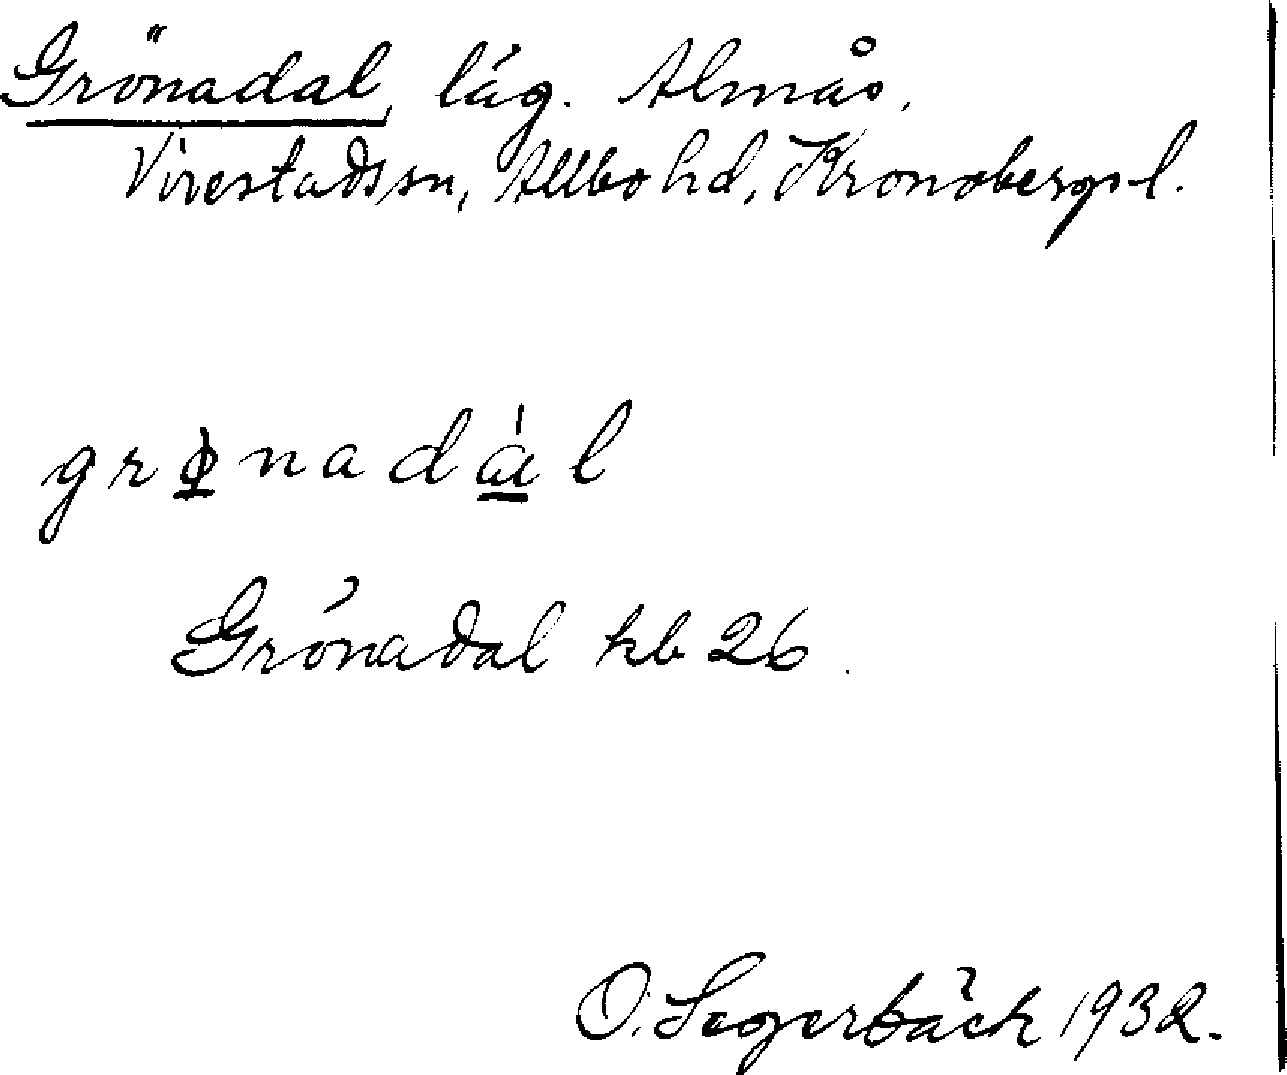 Grönadal, läg. Almås,
Virestads sn, Allbo hd, Kronobergs l.
grønadál
Grönadal hb 26.
O. Segerbäck 1932.